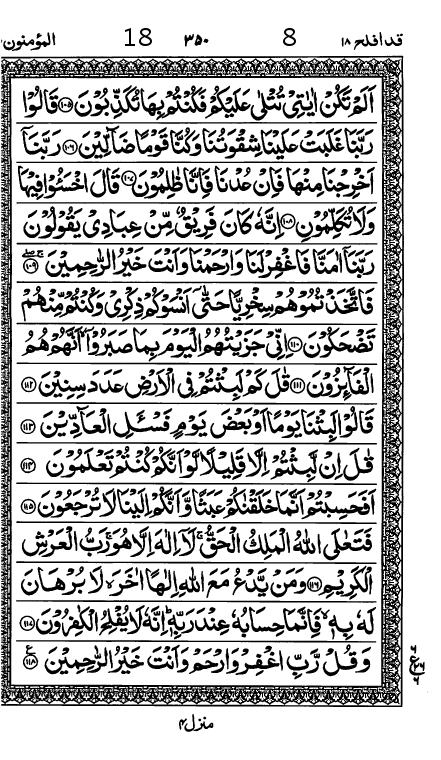 قد افلح ۱۸ 8 ۳۵۰ 18 المؤمنون
اَلَمْ تَكُنْ اٰيٰتِىْ تُتْلٰى عَلَيْكُمْ فَكُنْتُمْ بِهَا تُكَذِّبُوْنَ ۝۱۰۵ قَالُوْا
رَبَّنَا غَلَبَتْ عَلَيْنَا شِقْوَتُنَا وَكُنَّا قَوْمًا ضَآلِّيْنَ ۝۱۰۶ رَبَّنَآ
اَخْرِجْنَا مِنْهَا فَاِنْ عُدْنَا فَاِنَّا ظٰلِمُوْنَ ۝۱۰۷ قَالَ اخْسَـُٔوْا فِيْهَا
وَلَا تُكَلِّمُوْنِ ۝۱۰۸ اِنَّهٗ كَانَ فَرِيْقٌ مِّنْ عِبَادِىْ يَقُوْلُوْنَ
رَبَّنَآ اٰمَنَّا فَاغْفِرْ لَنَا وَارْحَمْنَا وَاَنْتَ خَيْرُ الرّٰحِمِيْنَ ۝۱۰۹
فَاتَّخَذْتُمُوْهُمْ سِخْرِيًّا حَتّٰٓى اَنْسَوْكُمْ ذِكْرِىْ وَكُنْتُمْ مِّنْهُمْ
تَضْحَكُوْنَ ۝۱۱۰ اِنِّىْ جَزَيْتُهُمُ الْيَوْمَ بِمَا صَبَرُوْٓا اَنَّهُمْ هُمُ
الْفَآئِزُوْنَ ۝۱۱۱ قٰلَ كَمْ لَبِثْتُمْ فِى الْاَرْضِ عَدَدَ سِنِيْنَ ۝۱۱۲
قَالُوْا لَبِثْنَا يَوْمًا اَوْ بَعْضَ يَوْمٍ فَسْـَٔلِ الْعَآدِّيْنَ ۝۱۱۳
قٰلَ اِنْ لَّبِثْتُمْ اِلَّا قَلِيْلًا لَّوْ اَنَّكُمْ كُنْتُمْ تَعْلَمُوْنَ ۝۱۱۴
اَفَحَسِبْتُمْ اَنَّمَا خَلَقْنٰكُمْ عَبَثًا وَّاَنَّكُمْ اِلَيْنَا لَا تُرْجَعُوْنَ ۝۱۱۵
فَتَعٰلَى اللّٰهُ الْمَلِكُ الْحَقُّ ۚ لَآ اِلٰهَ اِلَّا هُوَ ۚ رَبُّ الْعَرْشِ
الْكَرِيْمِ ۝۱۱۶ وَمَنْ يَّدْعُ مَعَ اللّٰهِ اِلٰهًا اٰخَرَ ۙ لَا بُرْهَانَ
لَهٗ بِهٖ ۙ فَاِنَّمَا حِسَابُهٗ عِنْدَ رَبِّهٖ ؕ اِنَّهٗ لَا يُفْلِحُ الْكٰفِرُوْنَ ۝۱۱۷
وَقُلْ رَّبِّ اغْفِرْ وَارْحَمْ وَاَنْتَ خَيْرُ الرّٰحِمِيْنَ ۝۱۱۸
ع
منزل ۴